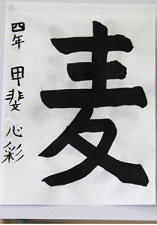 麦
四年 甲斐心彩